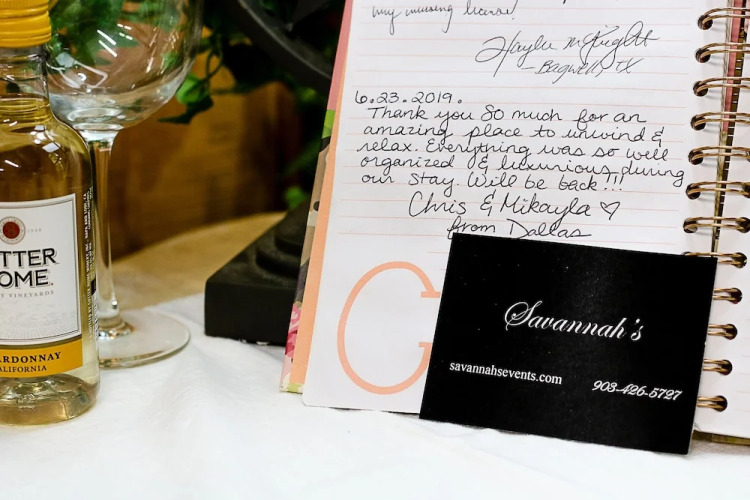 my nursing license!
Haylee McKnight
- Bagwell, TX
6.23.2019.
Thank you so much for an
amazing place to unwind &
relax. Everything was so well
organized & luxurious during
our stay. Will be back!!!
Chris & Mikayla ♡
from Dallas
G
Savannah's
savannahsevents.com
903-426-5727
TTER
OME
VINEYARDS
ARDONNAY
ALIFORNIA